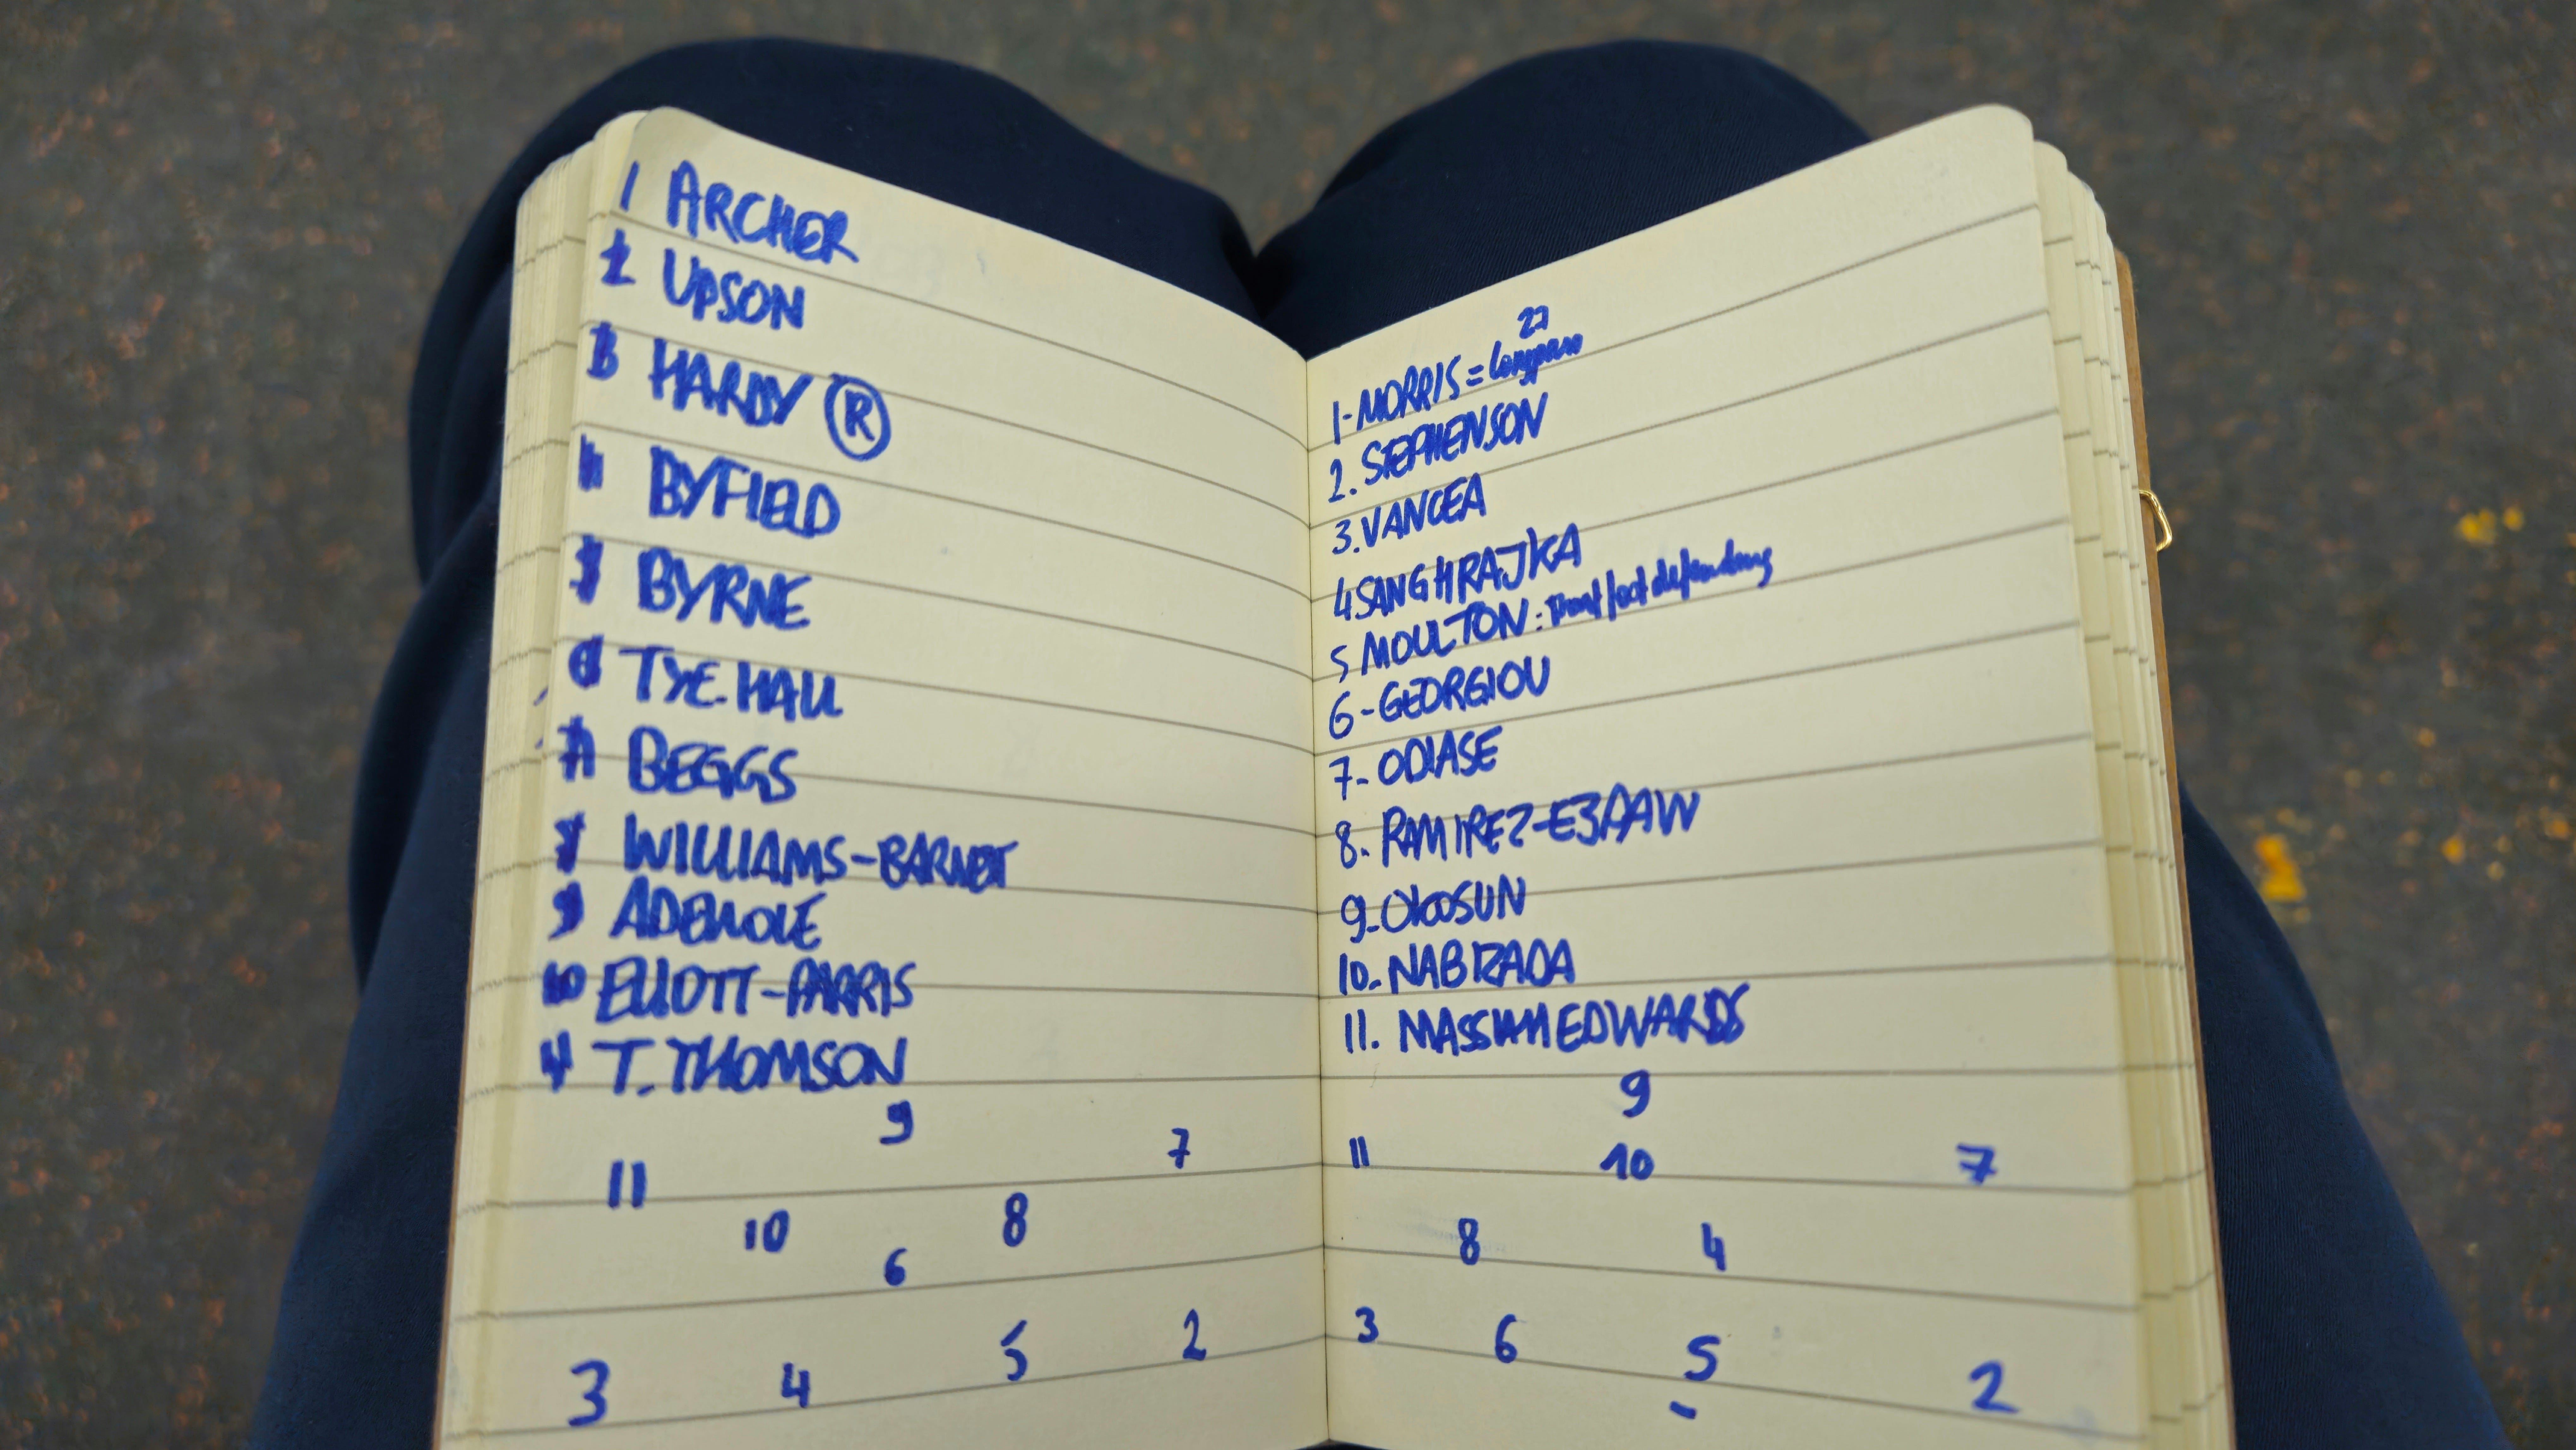 1 ARCHER
2 UPSON
3 HARDY Ⓡ
4 BYFIELD
5 BYRNE
6 TYE-HALL
7 BEGGS
8 WILLIAMS-BARNETT
9 ADEWOLE
10 ELLIOTT-PARRIS
11 T. THOMSON
9
11 7
10 8
6
3 4 5 2
27
1-MORRIS =
2. STEPHENSON
3. VANCEA
4 SANGHRAJKA
5 MOULTON: front foot defending
6-GEORGIOU
7- ODIASE
8- RAMIREZ-ESPAW
9-OKOSUN
10- NABIZADA
11. MASSIAH EDWARDS
9
11 10 7
8 4
3 6 5 2